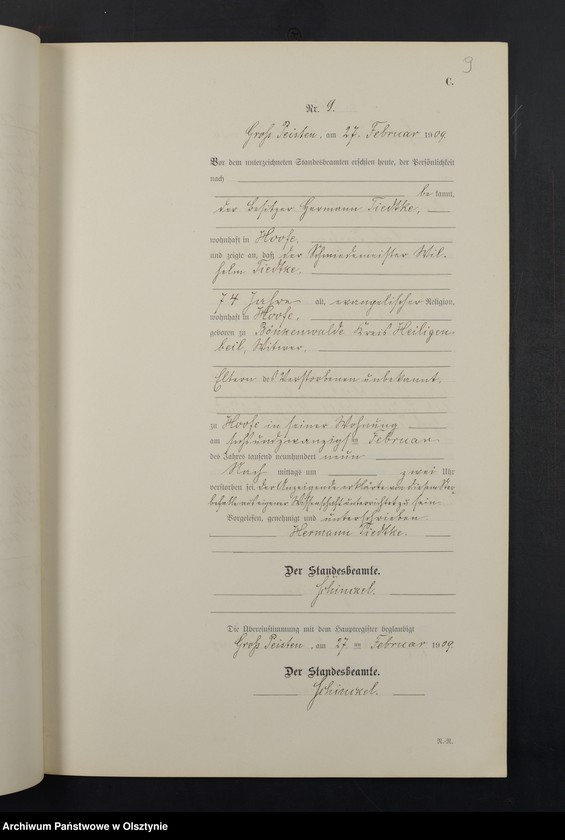 9
C.
Nr. 9.
Gross Peisten, am 27. Februar 1909
Vor dem unterzeichneten Standesbeamten erschien heute, der Persönlichkeit
nach
be kannt,
der Besitzer Hermann Tiedtke,
wohnhaft in Hoofe.
und zeigte an, daß der Schmiedemeister Wil-
helm Tiedtke.
74 Jahre alt, evangelischer Religion,
wohnhaft in Hoofe.
geboren zu Bönkenwalde Kreis Heiligen-
beil, Witwer.
Eltern des Verstorbenen unbekannt.
zu Hoofe in seiner Wohnung
am sechsundzwanzigsten Februar
des Jahres tausend neunhundert neun
Nach mittags um zwei Uhr
verstorben sei. Der Anzeigende erklärte von diesem Ster-
befalle aus eigener Wissenschaft unterrichtet zu sein.
Vorgelesen, genehmigt und unterschrieben.
Hermann Tiedtke.
Der Standesbeamte.
Schinckel.
Die Übereinstimmung mit dem Hauptregister beglaubigt
Gross Peisten, am 27ten Februar 1909.
Der Standesbeamte.
Schinckel.
R.-R.
Archiwum Państwowe w Olsztynie